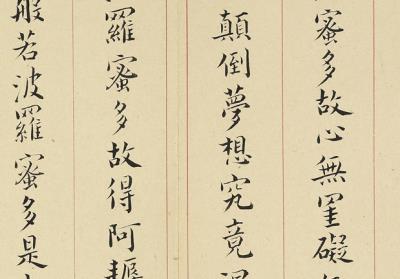 蜜多故心無罣礙
顛倒夢想究竟涅
羅蜜多故得阿耨
般若波羅蜜多是